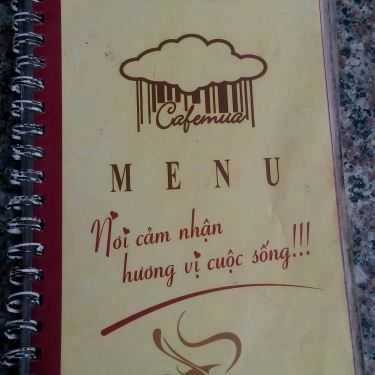 Cafemưa
MENU
Nơi cảm nhận
hương vị cuộc sống!!!